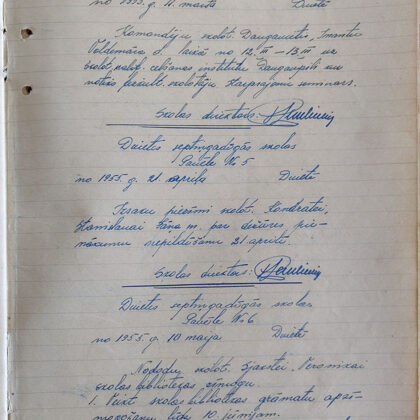 no 1955. g. 11. marta Dvietē
Komandēju skolot. Daugavieti, Imantu
Voldemāra d. laikā no 12. III – 13. III uz
skolot. kvalif. celšanas institūtu Daugavpilī uz
skolotāju starprajonu seminars.
Skolas direktors:
Dvietes septiņgadīgās skolas
Pavēle № 5
no 1955. g. 21. aprīlī Dvietē
Izsaku piezīmi skolot. Kondratei,
Staņislavai Jāņa m. par dežūras pie-
nākumu nepildīšanu 21. aprīlī.
Skolas direktors:
Dvietes septiņgadīgās skolas
Pavēle № 6
no 1955. g. 10. maija Dvietē
Nododu skolot. Veronikai
skolas bibliotekas
1. Veikt skolas bibliotekas grāmatu apzī-
līdz 10. jūnijam.